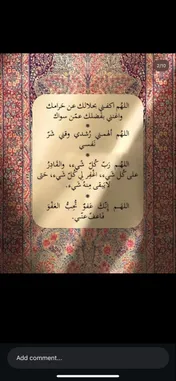 2/10
اللهُم اكفني بحلالك عن حرامك
واغنني بفضلك عمّن سواك
اللهُم ألهمني رُشدي وقني شَرّ
نَفسي
اللهُم رَبّ كُلّ شيء، والقَادِرُ
على كُلّ شَيء، اغفِر لِي كُلّ شَيء، حَتى
لاتَبقى مِنهُ شَيء.
اللهُم إنّكَ عَفوٌ تُحِبُّ العَفْوَ
فَاعفُ عنّي.
Add comment...